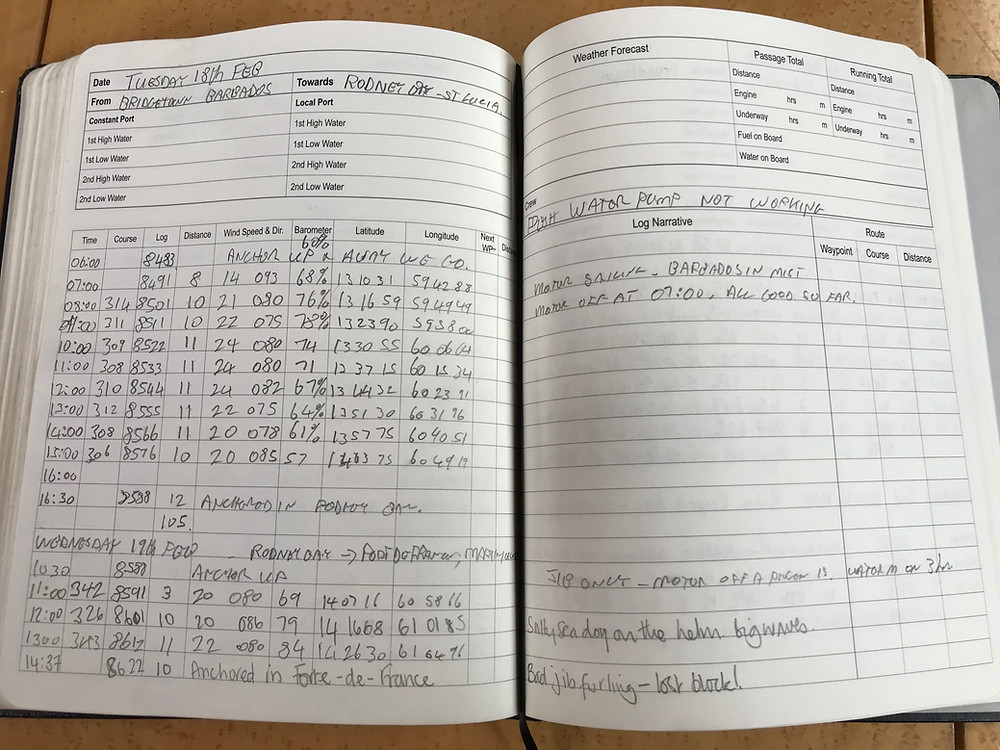 Date TUESDAY 18th FEB
From BRIDGETOWN BARBADOS Towards RODNEY BAY - ST LUCIA.
Constant Port Local Port
1st High Water 1st High Water
1st Low Water 1st Low Water
2nd High Water 2nd High Water
2nd Low Water 2nd Low Water
Time Course Log Distance Wind Speed & Dir. Barometer Latitude Longitude Next WP
60%
06:00 8483 ANCHOR UP & AWAY WE GO.
07:00 8491 8 14 093 68% 131031 594288
08:00 314 8501 10 21 080 76% 131659 594949
09:00 311 8511 10 22 075 78% 132390 595800
10:00 309 8522 11 24 080 74 133055 600664
11:00 308 8533 11 24 080 71 133715 601534
12:00 310 8544 11 24 082 67% 134432 602391
13:00 312 8555 11 22 075 64% 135130 603196
14:00 308 8566 11 20 078 61% 135775 604051
15:00 306 8576 10 20 085 57 140375 604919
16:00
16:30 8588 12 ANCHORED IN RODNEY BAY.
105.
WEDNESDAY 19th FEB - RODNEY BAY → FORT DE FRANCE,
10:30 8588 ANCHOR UP
11:00 342 8591 3 20 080 69 140716 605866
12:00 326 8601 10 20 086 79 141668 610185
1300 343 8612 11 22 080 84 142630 610496
14:37 8622 10 Anchored in Forte-de-France
Weather Forecast Passage Total Running Total
Distance Distance
Engine hrs m Engine hrs m
Underway hrs m Underway hrs m
Fuel on Board
Water on Board
Crew
FRESH WATER PUMP NOT WORKING
Log Narrative Route
Waypoint Course Distance
MOTOR SAILING - BARBADOS IN MIST
MOTOR OFF AT 07:00, ALL GOOD SO FAR.
JIB ONLY - MOTOR OFF WATER M ON 3hr
Salty sea dog on the helm. big waves
Bad jib furling - lost block!